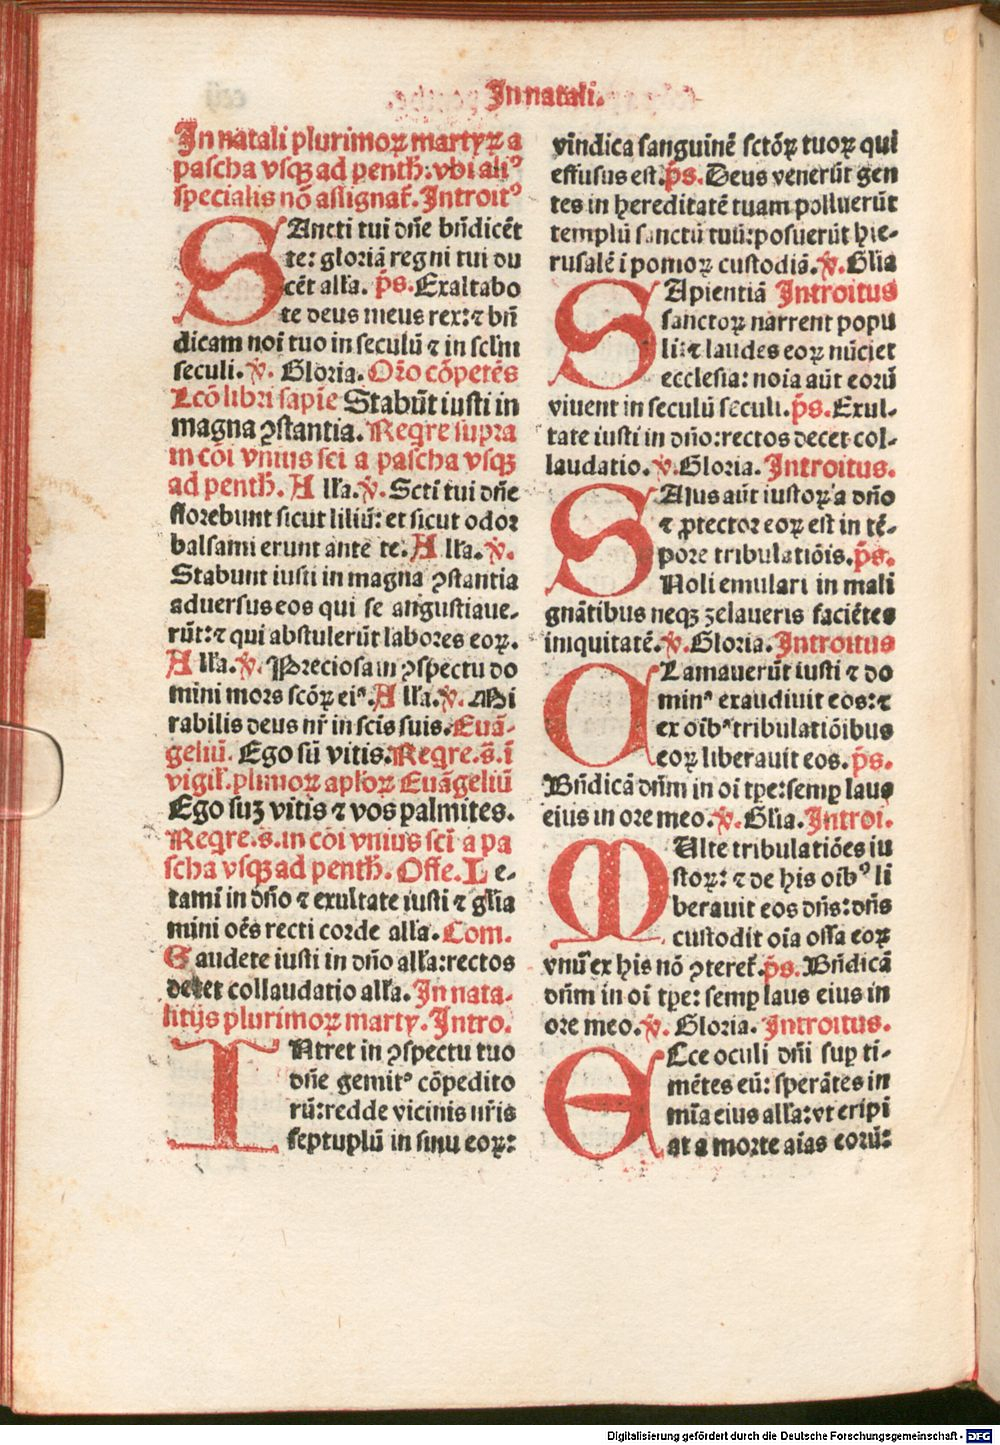 In natali.
In natali plurimoꝝ martyꝝ a
pascha vsqꝫ ad penth̄: vbi aliꝰ
specialis nō assignat̄. Introitꝰ
SAncti tui dn̄e bn̄dicēt
te: gloriā regni tui di
cēt alľa. p̄s. Exaltabo
te deus meus rex: ⁊ bn̄
dicam noī tuo in seculū ⁊ in sclm̄
seculi. ℣. Gloria. Oro cōpetēs
Lcō libri sapīe Stabūt iusti in
magna ꝯstantia. Reqre supra
in cōi vnius sci a pascha vsqꝫ
ad penth̄. Allľa. ℣. Scti tui dn̄e
florebunt sicut liliū: et sicut odor
balsami erunt ante te. Allľa. ℣.
Stabunt iusti in magna ꝯstantia
aduersus eos qui se angustiaue-
rūt: ⁊ qui abstulerūt labores eoꝝ.
Allľa. ℣. Preciosa in ꝯspectu do
mini mors scōꝝ eiꝰ. Allľa. ℣. Mi
rabilis deus nr̄ in scis suis. Euā-
geliū. Ego sū vitis. Reqre. s̄. ī
vigil̄. plimoꝝ aplōꝝ Euāgeliū
Ego suꝫ vitis ⁊ vos palmites.
Reqre. s. in cōi vnius sci a pa
scha vsqꝫ ad penth̄. Offe. Le-
tamī in dn̄o ⁊ exultate iusti ⁊ glīa
mini oēs recti corde alľa. Com.
Gaudete iusti in dn̄o alľa: rectos
decet collaudatio alľa. In nata-
litijs plurimoꝝ marty. Intro.
INtret in ꝯspectu tuo
dn̄e gemitꝰ cōpedito
rū: redde vicinis nr̄is
septuplū in sinu eoꝝ:
vindica sanguinē sctōꝝ tuoꝝ qui
effusus est. p̄s. Deus venerūt gen
tes in hereditatē tuam polluerūt
templū sanctū tuū: posuerūt hie-
rusalē ī pomoꝝ custodiā. ℣. Glīa
SApientiā Introitus
sanctoꝝ narrent popu
li: ⁊ laudes eoꝝ nūciet
ecclesia: noīa aūt eorū
viuent in seculū seculi. p̄s. Exul-
tate iusti in dn̄o: rectos decet col-
laudatio. ℣. Gloria. Introitus.
SAlus aūt iustoꝝ a dn̄o
⁊ ꝓtector eoꝝ est in tē-
pore tribulatiōis. p̄s.
Noli emulari in mali
gnātibus neqꝫ zelaueris faciētes
iniquitatē. ℣. Gloria. Introitus
CLamauerūt iusti ⁊ do
minꝰ exaudiuit eos: ⁊
ex oībꝰ tribulatiōibus
eoꝝ liberauit eos. p̄s.
Bn̄dicā dn̄m in oī tpe: semp laus
eius in ore meo. ℣. Glīa. Introi.
MUlte tribulatiōes iu
stoꝝ: ⁊ de his oībꝰ li
berauit eos dn̄s: dn̄s
custodit oīa ossa eoꝝ
vnū ex his nō ꝯteret̄. p̄s. Bn̄dicā
dn̄m in oī tpe: semp laus eius in
ore meo. ℣. Gloria. Introitus.
ECce oculi dn̄i sup ti-
mētes eū: sperātes in
mīa eius alľa: vt eripi
at a morte aīas eorū:
Digitalisierung gefördert durch die Deutsche Forschungsgemeinschaft - DFG